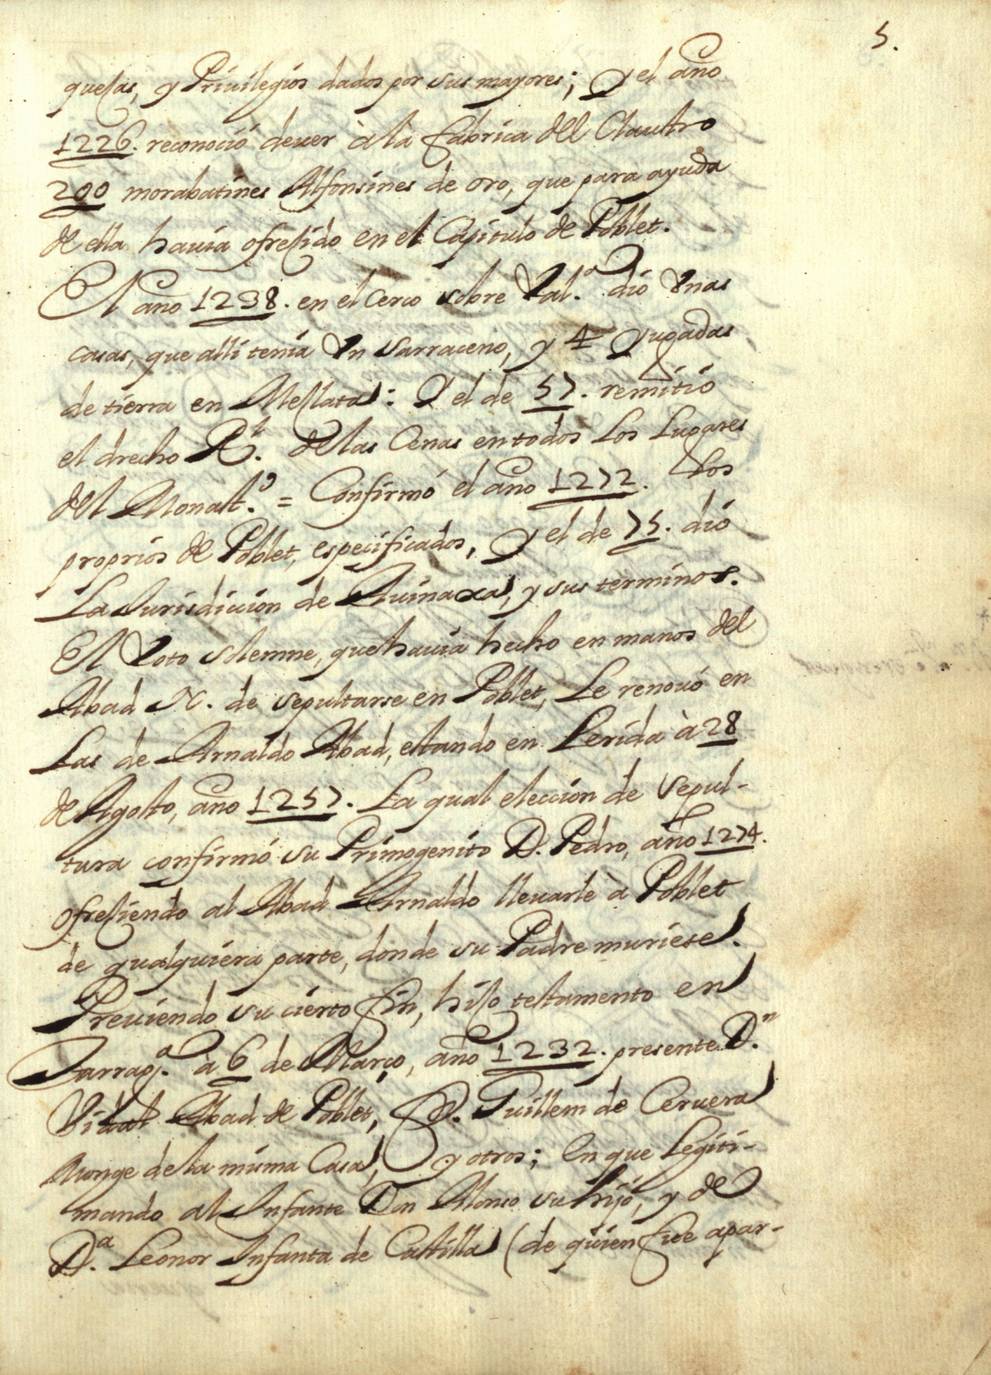 5.
quesas, y Privilegios dados por sus mayores; Y el año
1226. reconoció dever à la fabrica dell Claustro
200 morabatines Alfonsines de oro, que para ayuda
de ella havia ofresido en el Capitulo de Poblet.
El año 1238. en el Cerco sobre Val.ª dió Unas
casas, que alli tenia Un Sarraceno, y 4 Jugadas
de tierra en Meslata: Y el de 57. remitió
el drecho R.l de las Cenas en todos los Lugares
dell Monast.º = Confirmó el año 1272. Los
proprios de Poblet, especificados, Y el de 75. dió
La Jurisdicion de Avinaxa, y sus terminos.
El Voto solemne, que havia hecho en manos dell
Abad N. de sepultarse en Poblet, Le renovó en
Las de Arnaldo Abad, estando en Lerida à 28
de Agosto, año 1257. La qual eleccion de Sepul-
tura confirmó su Primogenito D. Pedro, año 1274.
ofresiendo al Abad Arnaldo llevarle à Poblet
de qualquiera parte, donde su Padre muriese.
Previendo su cierto fin, hiso testamento en
Tarrag.ª à 6 de Março, año 1232. presente D.n
Vidal Abad de Poblet, D. Guillem de Cervera
Monge de la misma Casa, y otros; En que Legiti-
mando al Infante Don Alonso su hijo, y de
D.ª Leonor Infanta de Castilla (de quien fue apar-